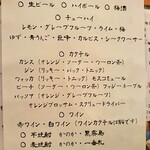 ◎ 生ビール ◎ ハイボール ◎ 梅酒
◎ チューハイ
レモン・グレープフルーツ・ライム・梅
ゆず・青りんご・巨峰・カルピス・シークワーサー
◎ カクテル
カシス (オレンジ・ソーダー・ウーロン茶)
ジン (リッキー・バック・トニック)
ウォッカ (リッキー・トニック) モスコミュール
ピーチ (オレンジ・ソーダー・ウーロン茶) ファジーネーブル
パッソア (オレンジ・グレープフルーツ)
オレンジブロッサム・スクリュードライバー
◎ ワイン
赤ワイン・白ワイン (ワインカクテル
◎ 芋焼酎 かのか・黒霧島
◎ 麦焼酎 かのか・一番札